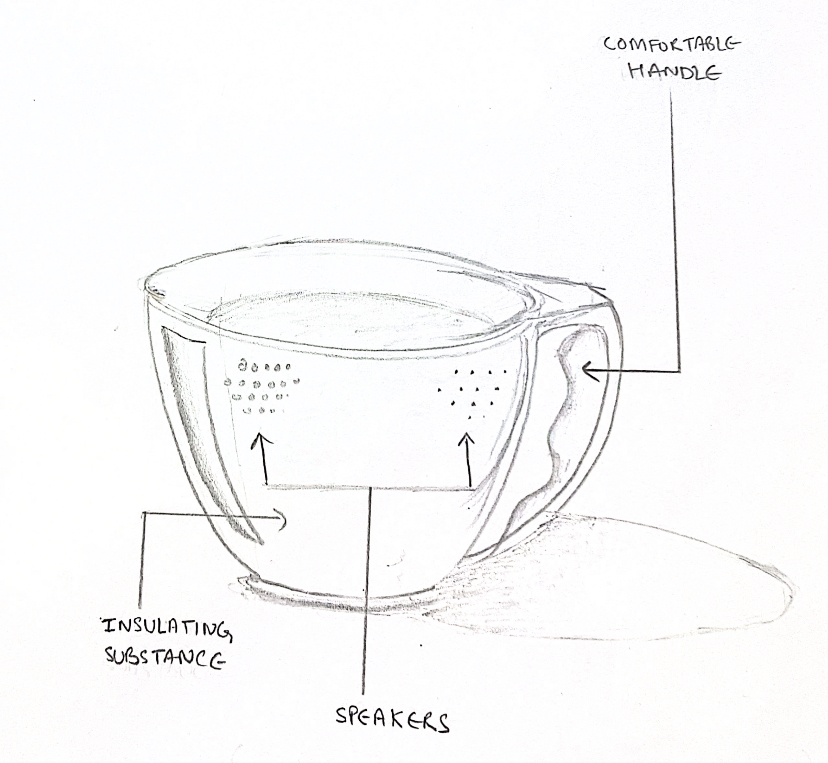 COMFORTABLE
HANDLE
INSULATING
SUBSTANCE
SPEAKERS